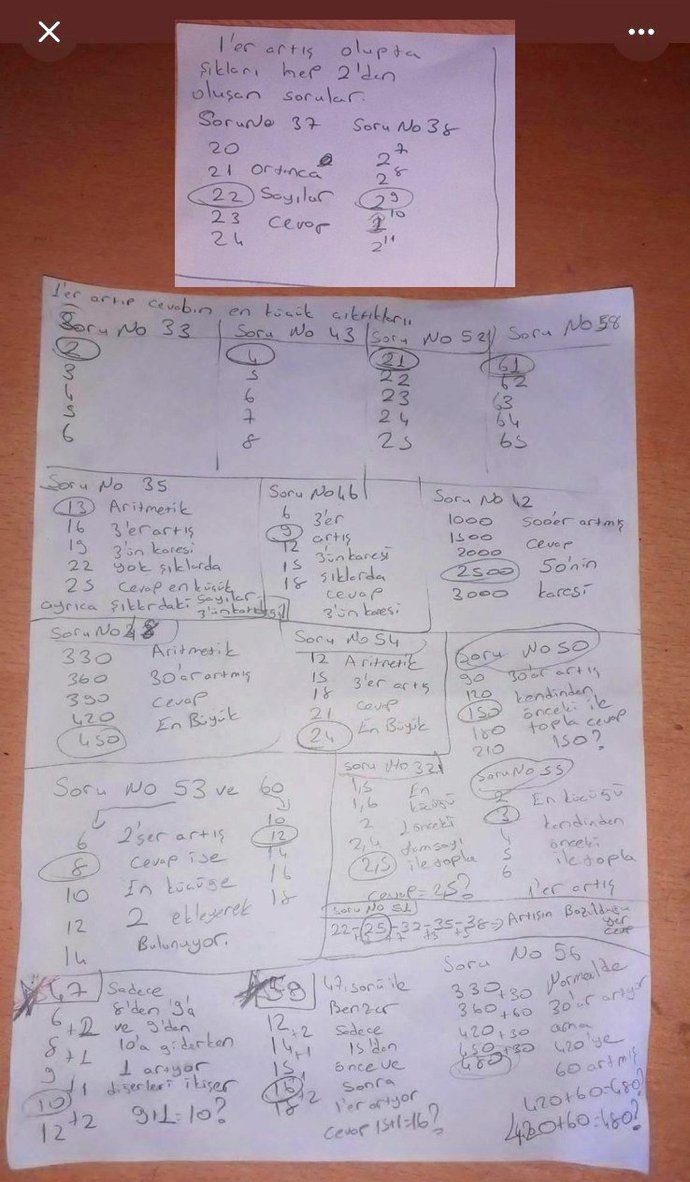 1'er artış olupta
şıkları hep 2'den
oluşan sorular.
Soru No 37 Soru No 38
20 2⁷
21 ortanca 2⁸
22 sayılar 2⁹
23 cevap 10
24 2¹¹
1'er artıp cevabın en küçük
Soru No 33
2
3
5
6
Soru No 43
4
5
6
7
8
Soru No 52
21
22
23
24
25
Soru No 58
61
62
63
64
65
Soru No 35
13 Aritmetik
16 3'er artış
19 3'ün karesi
22 yok şıklarda
25 cevap en küçük
ayrıca şıklardaki sayılar
3'ün
Soru No 46
6 3'er
9 artış
12 3'ün karesi
15 şıklarda
18 cevap
3'ün karesi
Soru No 42
1000 500'er artmış
1500 cevap
2000
2500 50'nin
3000 karesi
Soru No
330 Aritmetik
360 30'ar artmış
390 cevap
420 En Büyük
450
Soru No 54
12 Aritmetik
15 3'er artış
18 cevap
21 En Büyük
24
Soru No 50
90 30'ar artış
120 kendinden
150 önceki ile
180 topla cevap
210 150?
Soru No 53 ve 60
6 2'şer artış 10
8 cevap ise 12
10 En küçüğe 14
12 2 ekleyerek 16
14 Bulunuyor. 18
Soru No 32
1,5 En
1,6 küçüğü
2 önceki
2,4
2,5 ile topla
cevap = 2,5?
Soru No 55
2 En küçüğü
3 kendinden
4 önceki
5 ile topla
6 1'er artış
Soru No 51
22-25-32-35-38 Artışın Bozulduğu
yer
47 Sadece
6 +2 8'den 9'a
8 +1 ve 9'dan
9 +1 10'a giderken
10 +2 1 artıyor
12 diğerleri ikişer
9+1=10?
59 47. soru ile
12 +2 Benzer
14 +1 sadece
15 +1 15'den
+2 önce ve
18 sonra
1'er artıyor
cevap 15+1=16?
Soru No 56
330 +30 Normalde
360 +60 30'ar artıyor
420 +30 ama
450 +30 420'ye
480 60 artmış
420+60=480?
420+60=480?